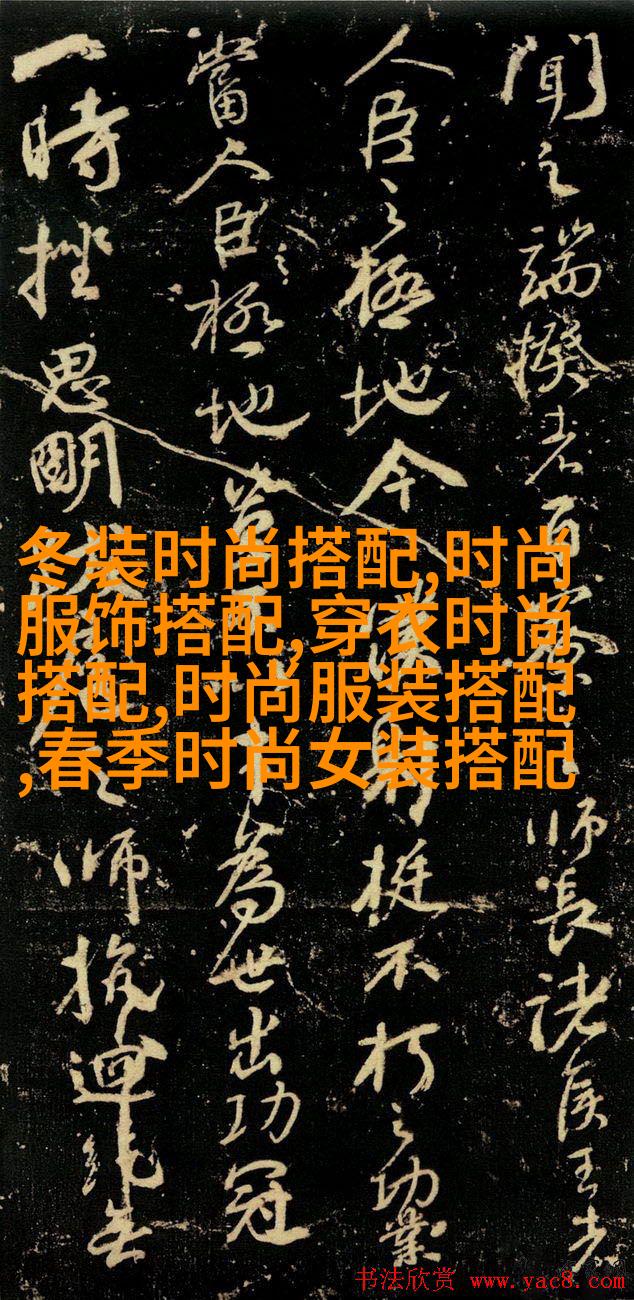 聞之端揆者百寮師長諸侯王者
人臣之極地今僕射挺不朽之功業
當人臣極地豈為世出功冠
一時挫思明師抗迴紇無
冬装时尚搭配,时尚
服饰搭配,穿衣时尚
搭配,时尚服装搭配
,春季时尚女装搭配
书法欣赏 www.yac8.com